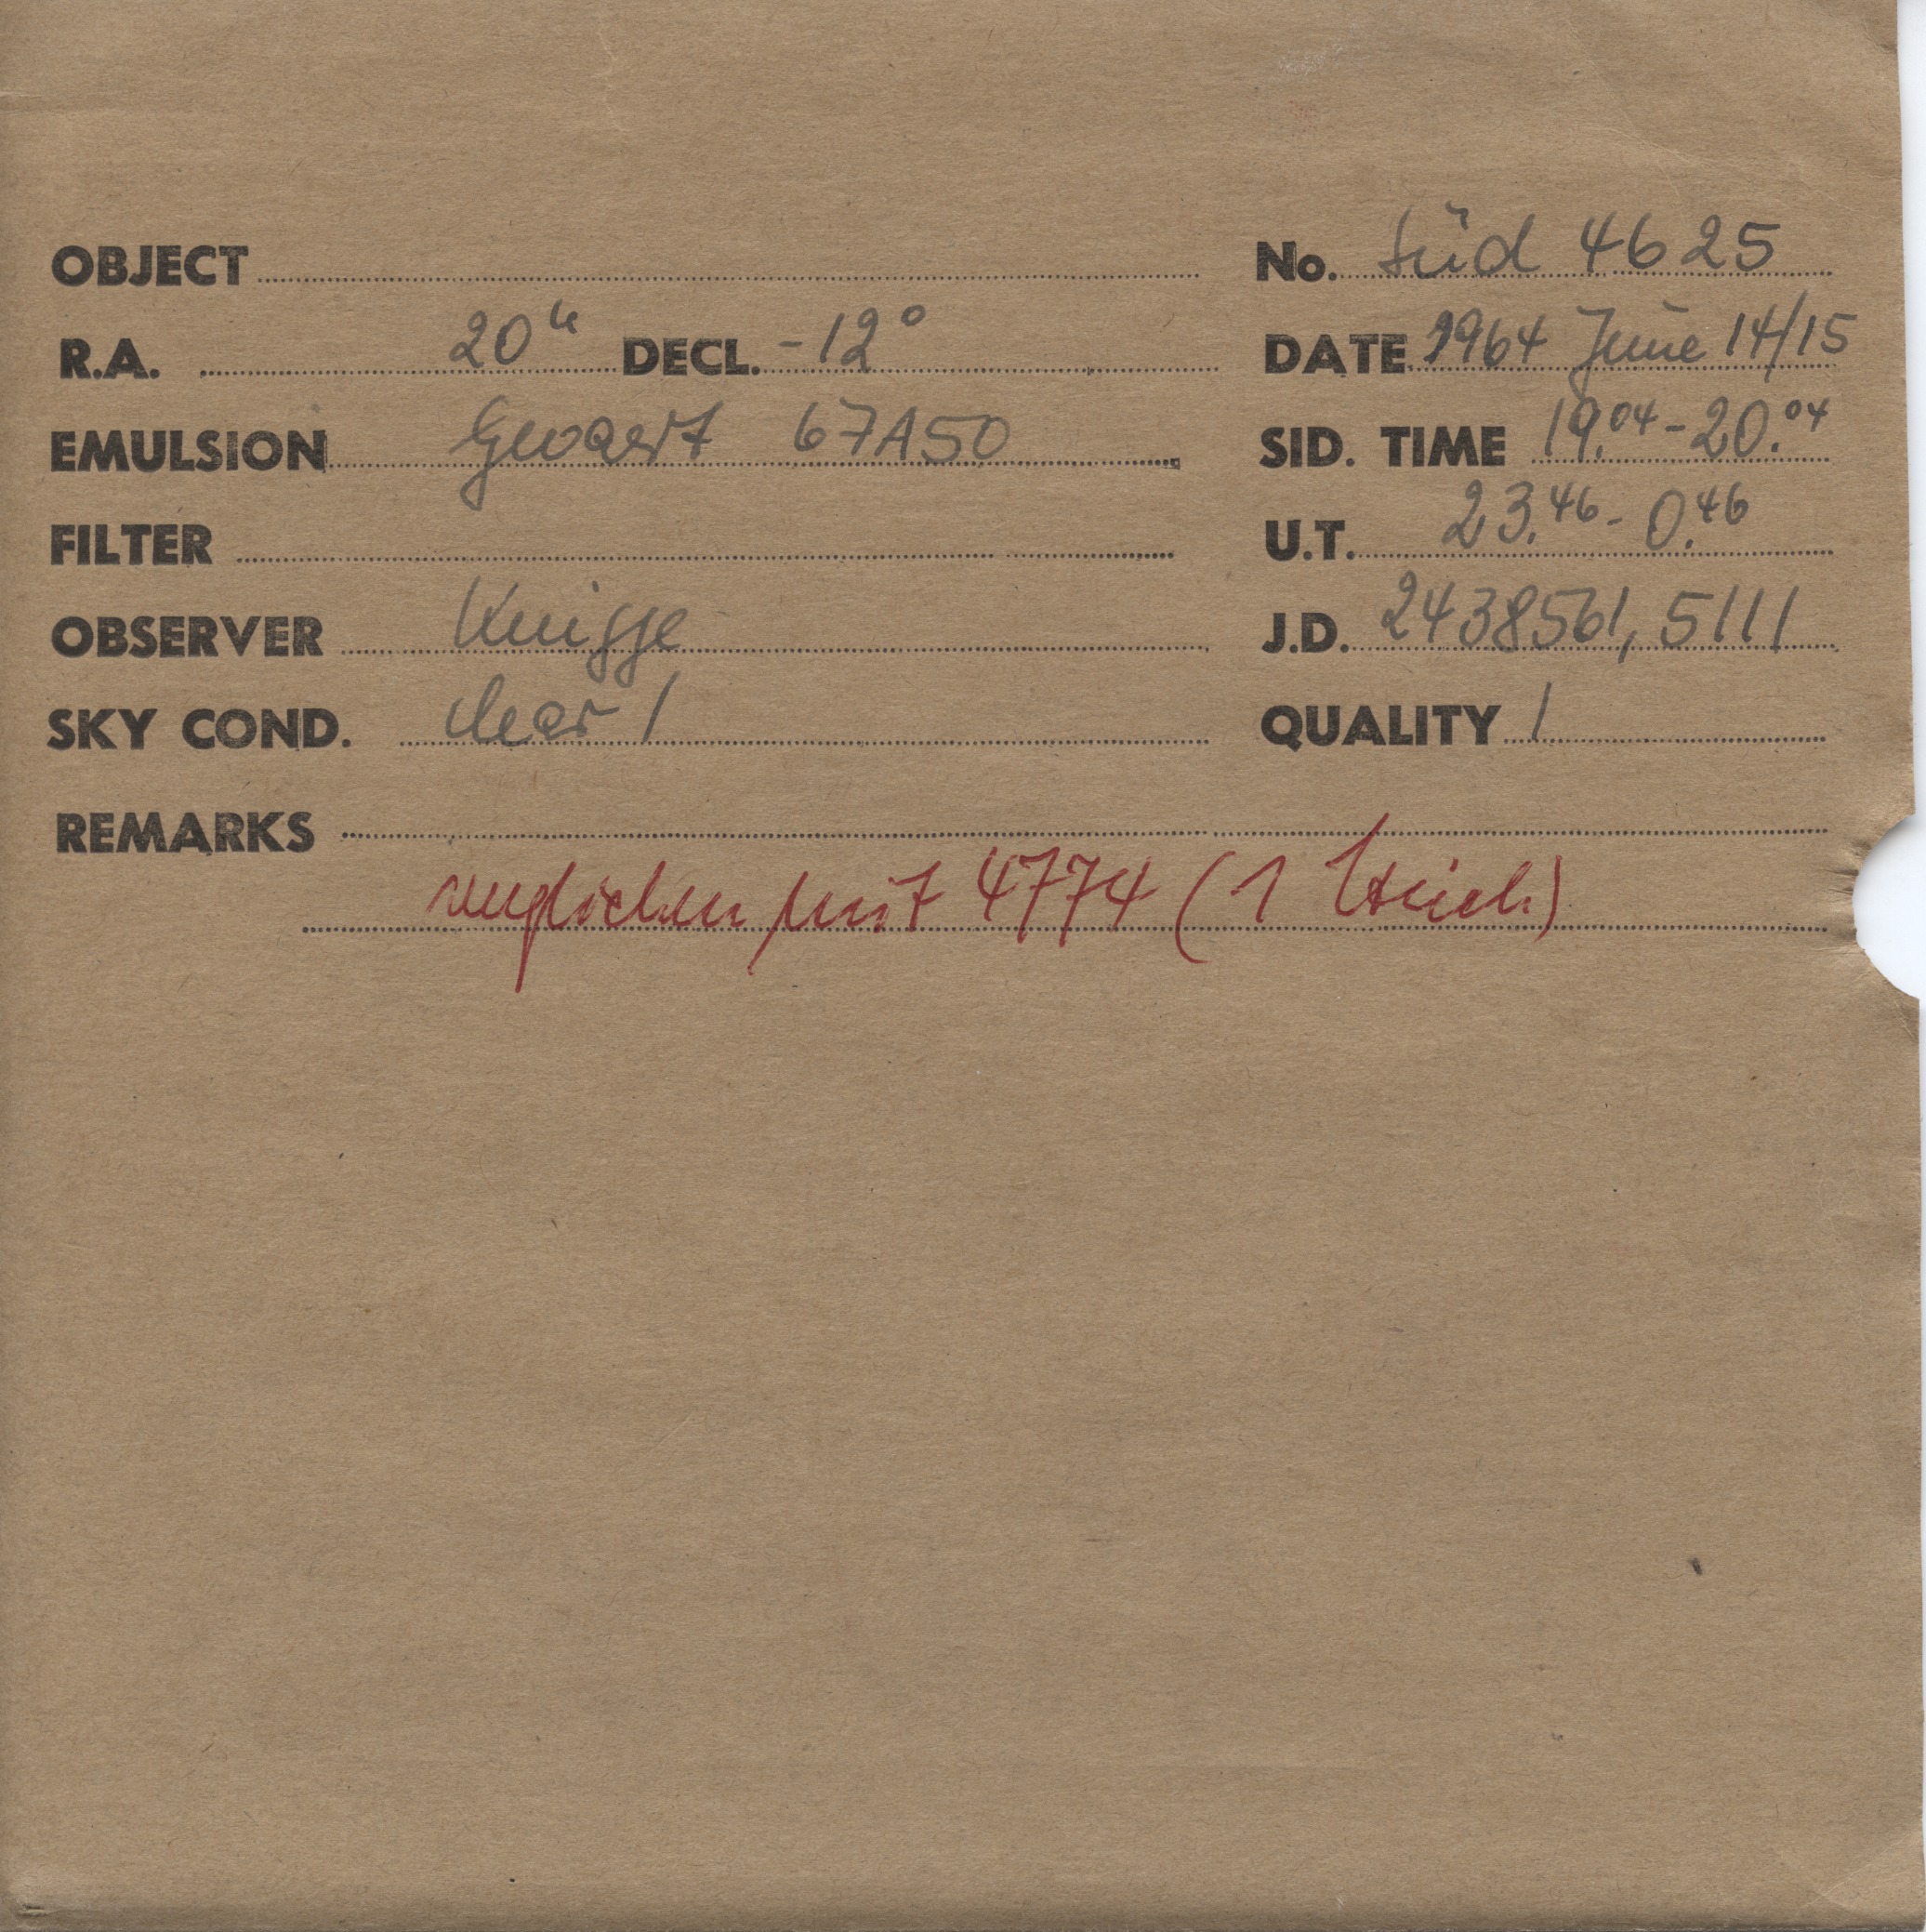 OBJECT No. Süd 4625
R.A. 20h DECL. -12°
DATE 1964 June 14/15
EMULSION Gevaert 67A50
SID. TIME 19.04 - 20.04
FILTER
U.T. 23.46 - 0.46
OBSERVER Knigge
J.D. 2438561,5111
SKY COND. clear 1
QUALITY 1
REMARKS
verglichen mit 4774 (1 Strich)